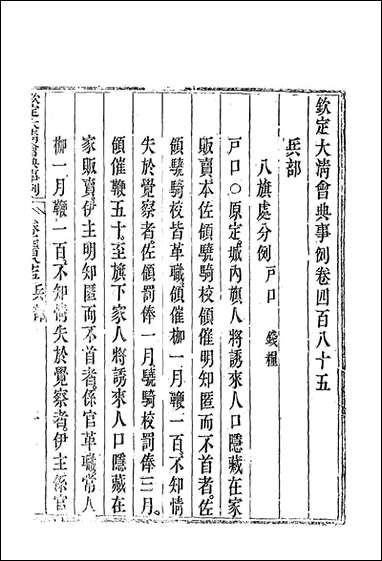 欽定大清會典事例卷四百八十五
兵部
八旗處分例 戶口 錢糧
戶口○原定城內旗人將誘來人口隱藏在家
販賣本佐領驍騎校領催明知匿而不首者佐
領驍騎校皆革職領催枷一月鞭一百不知情
失於覺察者佐領罰俸一月驍騎校罰俸三月
領催鞭五十至旗下家人將誘來人口隱藏在
家販賣伊主明知匿而不首者係官革職常人
枷一月鞭一百不知情失於覺察者伊主係官
欽定大清會典事例
兵部